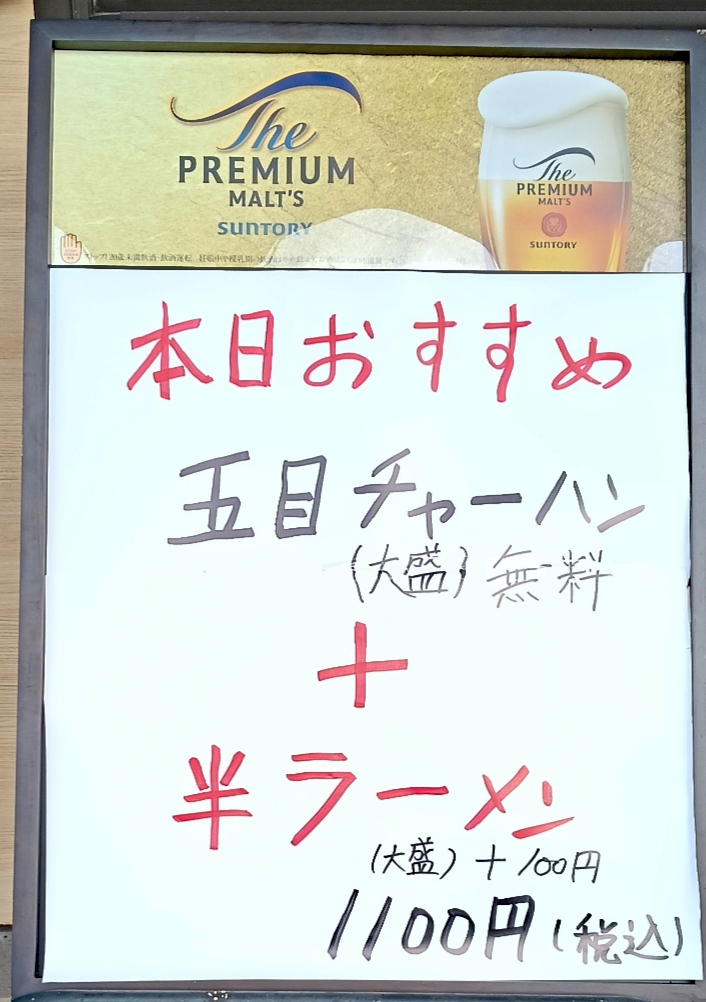 The
PREMIUM
MALT'S
SUNTORY
The
PREMIUM
MALT'S
SUNTORY
ストップ!20歳未満飲酒・飲酒運転。
本日おすすめ
五目チャーハン
(大盛) 無料
+
半ラーメン
(大盛) +100円
1100円(税込)